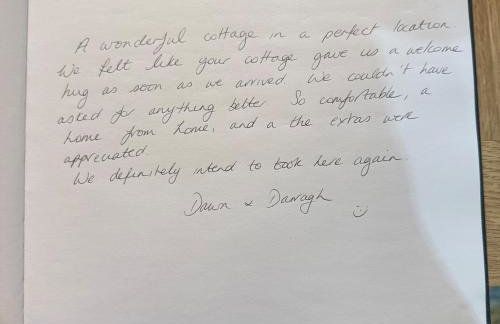 A wonderful cottage in a perfect location.
We felt like your cottage gave us a welcome
hug as soon as we arrived. We couldn't have
asked for anything better. So comfortable, a
home from home, and a the extras were
appreciated.
We definitely intend to book here again.
Dawn & Darragh